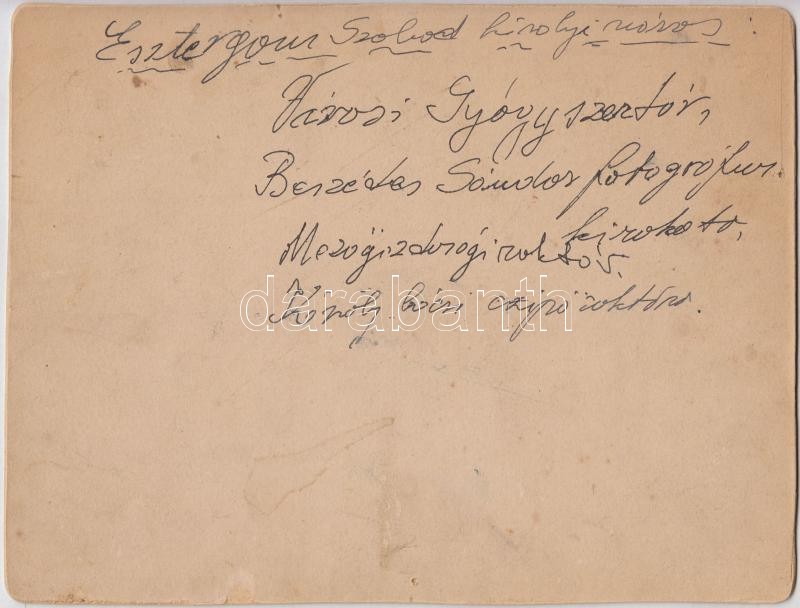 Esztergom Szabad királyi város:
Városi Gyógyszertár,
Beszédes Sándor fotográfus
kirakata,
Mezőgizdasági raktár.
Király bécsi czipő raktára.
darabanth